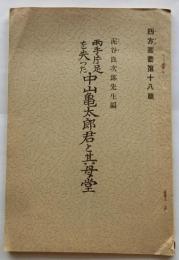 四方叢書第十八編
泥谷良次郎先生編
両手片足
を失つた
中山亀太郎君と其母堂